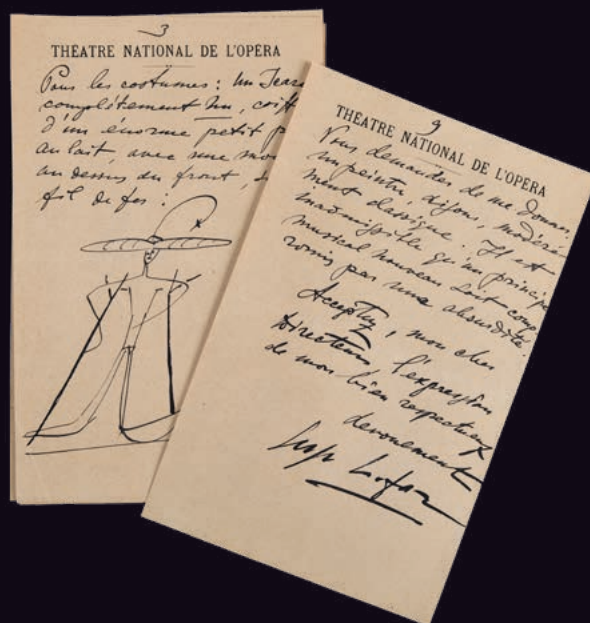 3
THÉATRE NATIONAL DE L'OPÉRA
Pour les costumes : un Icare
complétement nu, coiffé
d'un énorme petit p
au lait, avec une mou
au dessus du front, 
fil de fer :
9
THÉATRE NATIONAL DE L'OPÉRA
Vous demander de me donner
un peintre, disons, modéré-
ment classique. Il est
inadmissible qu'un principe
musical nouveau soit comp-
romis par une absurdité.
Acceptez, mon cher
Directeur, l'expression
de mon bien respectueux
devouement
Serge Lifar